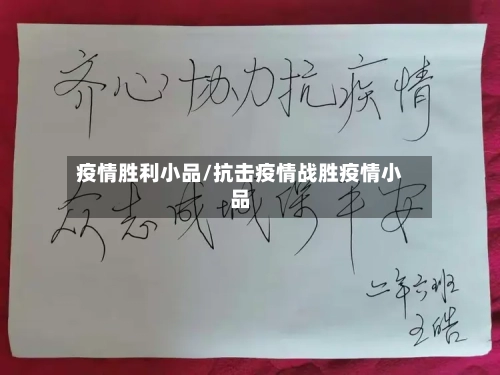 齐心协力抗疫情
疫情胜利小品/抗击疫情战胜疫情小
品
众志成城保平安
二年六班
王皓